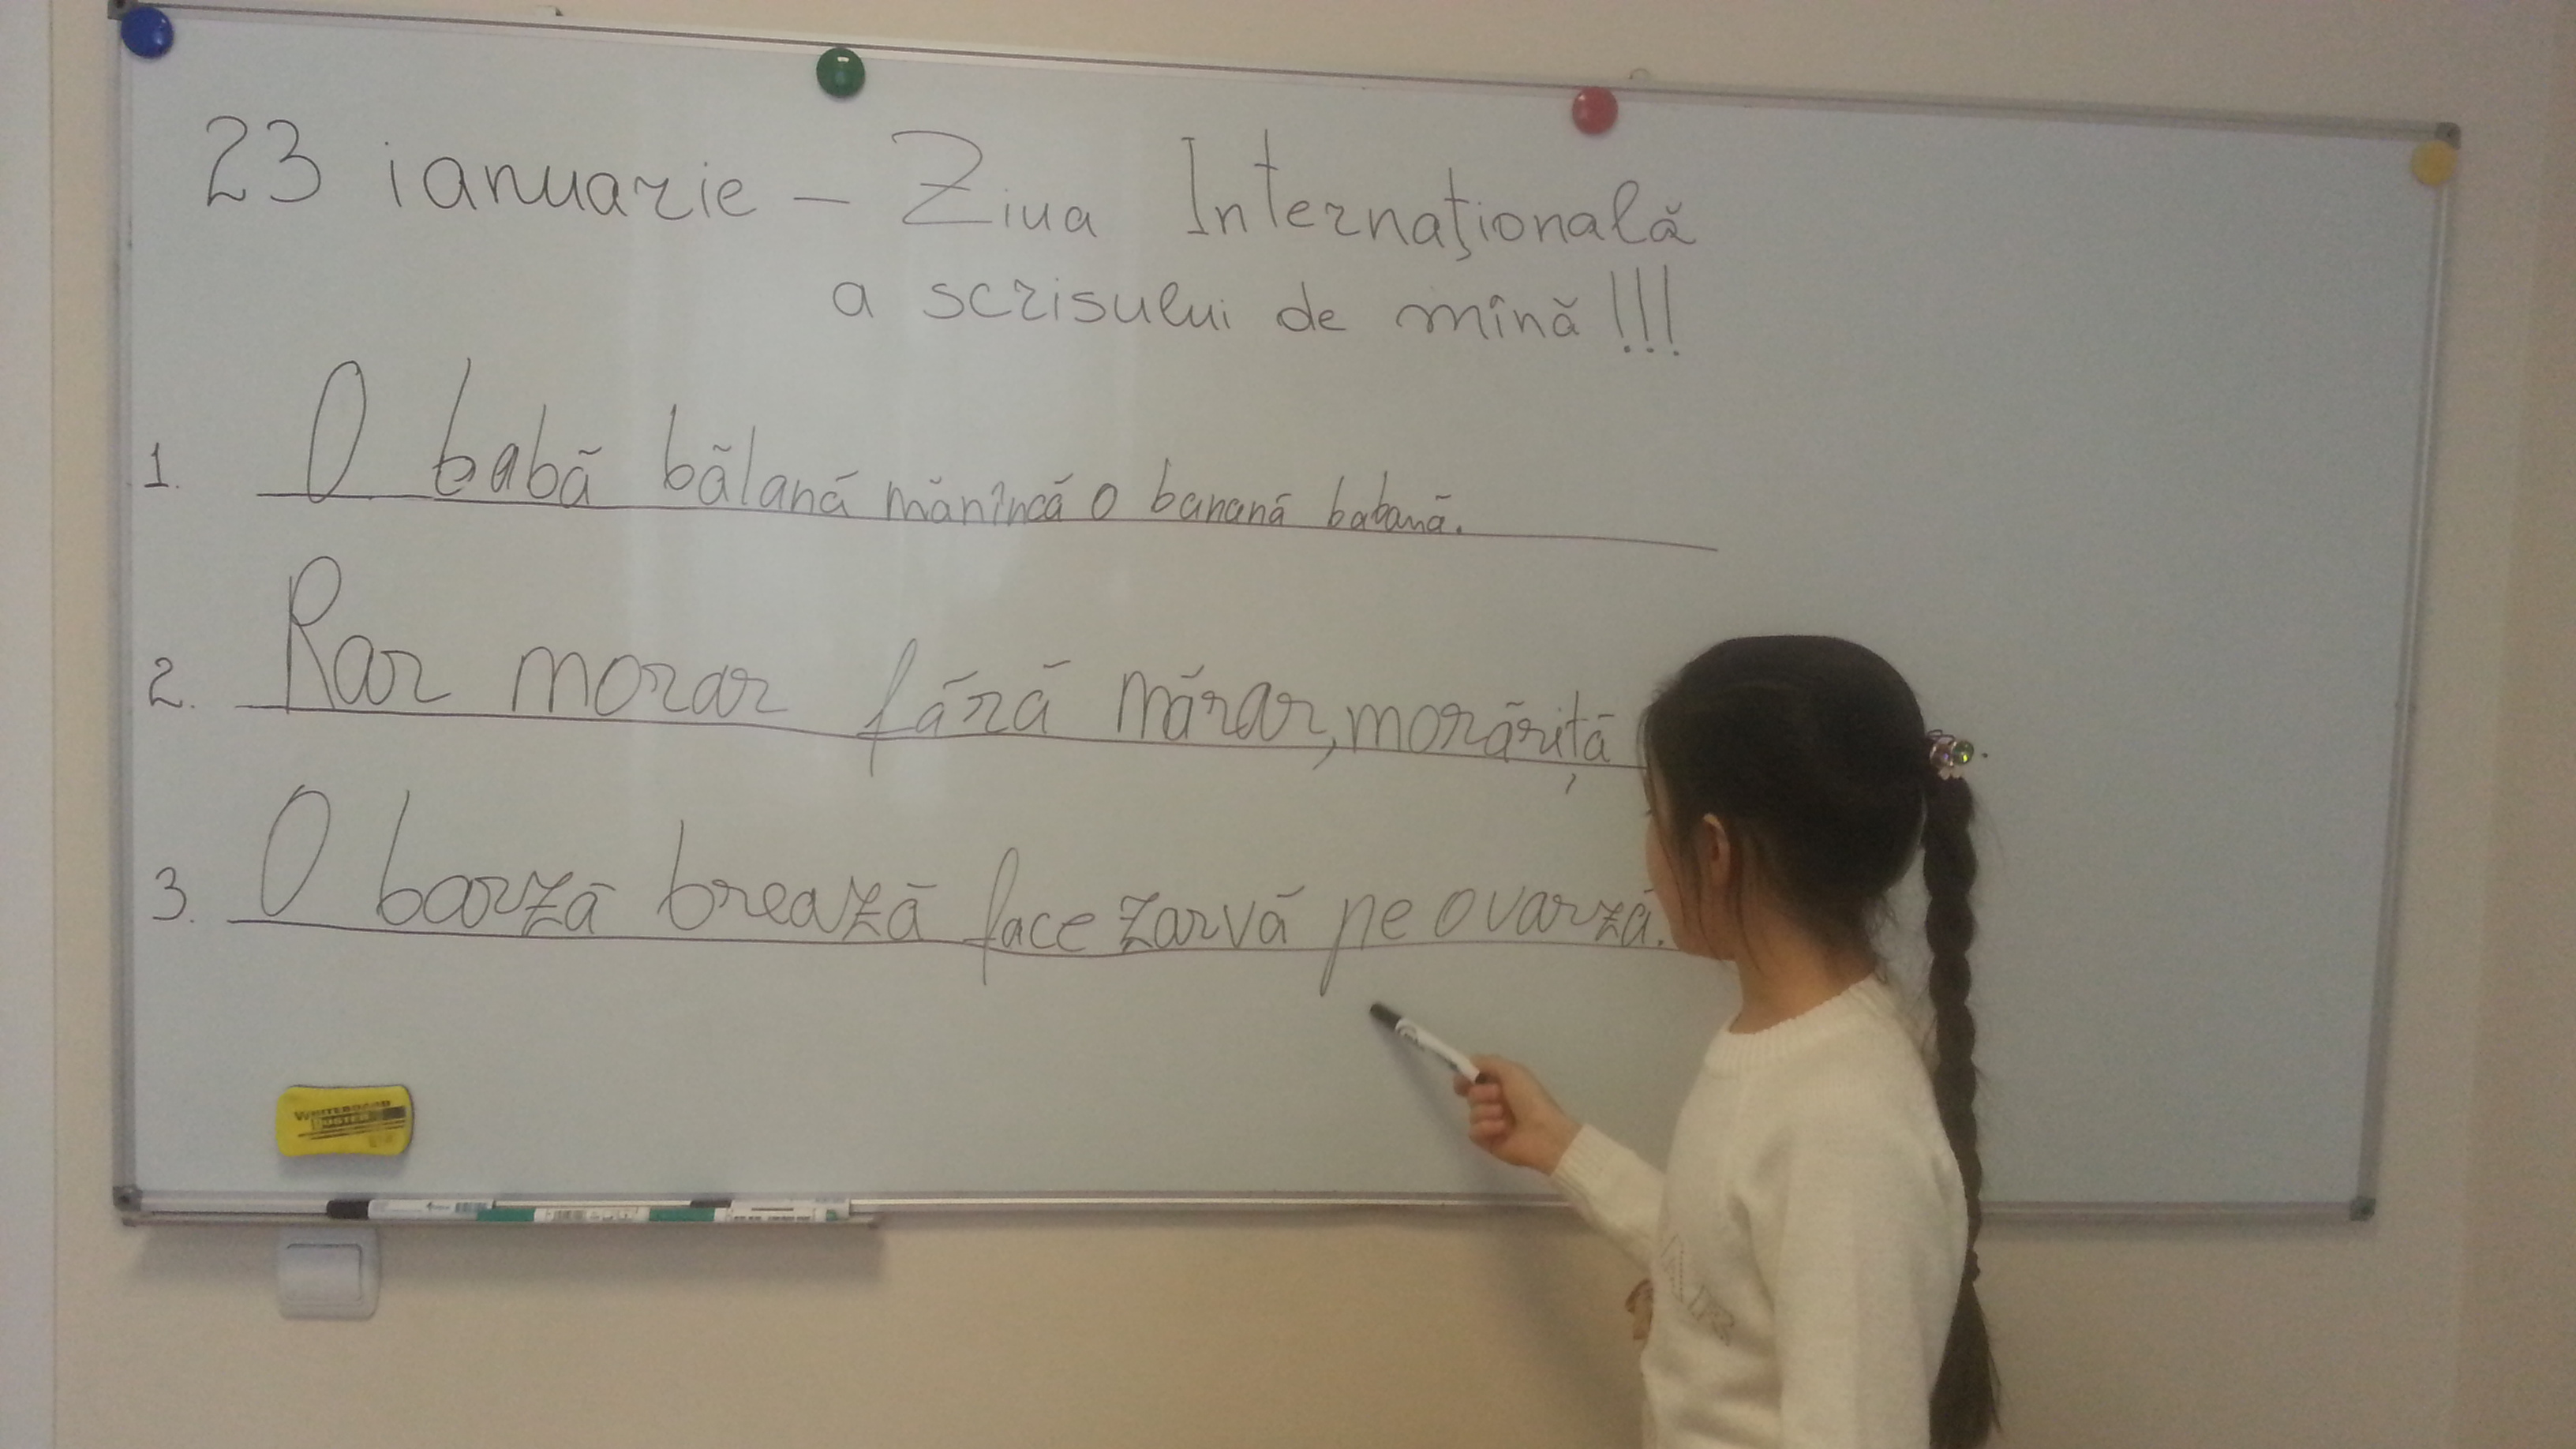 23 ianuarie - Ziua Internaţională
a scrisului de mînă!!!
1. O babă bălană mănîncă o banană babană.
2. Rar morar fără mărar, morăriţă
3. O barză brează face zarvă pe o varză.
WHITEBOARD
DUSTER